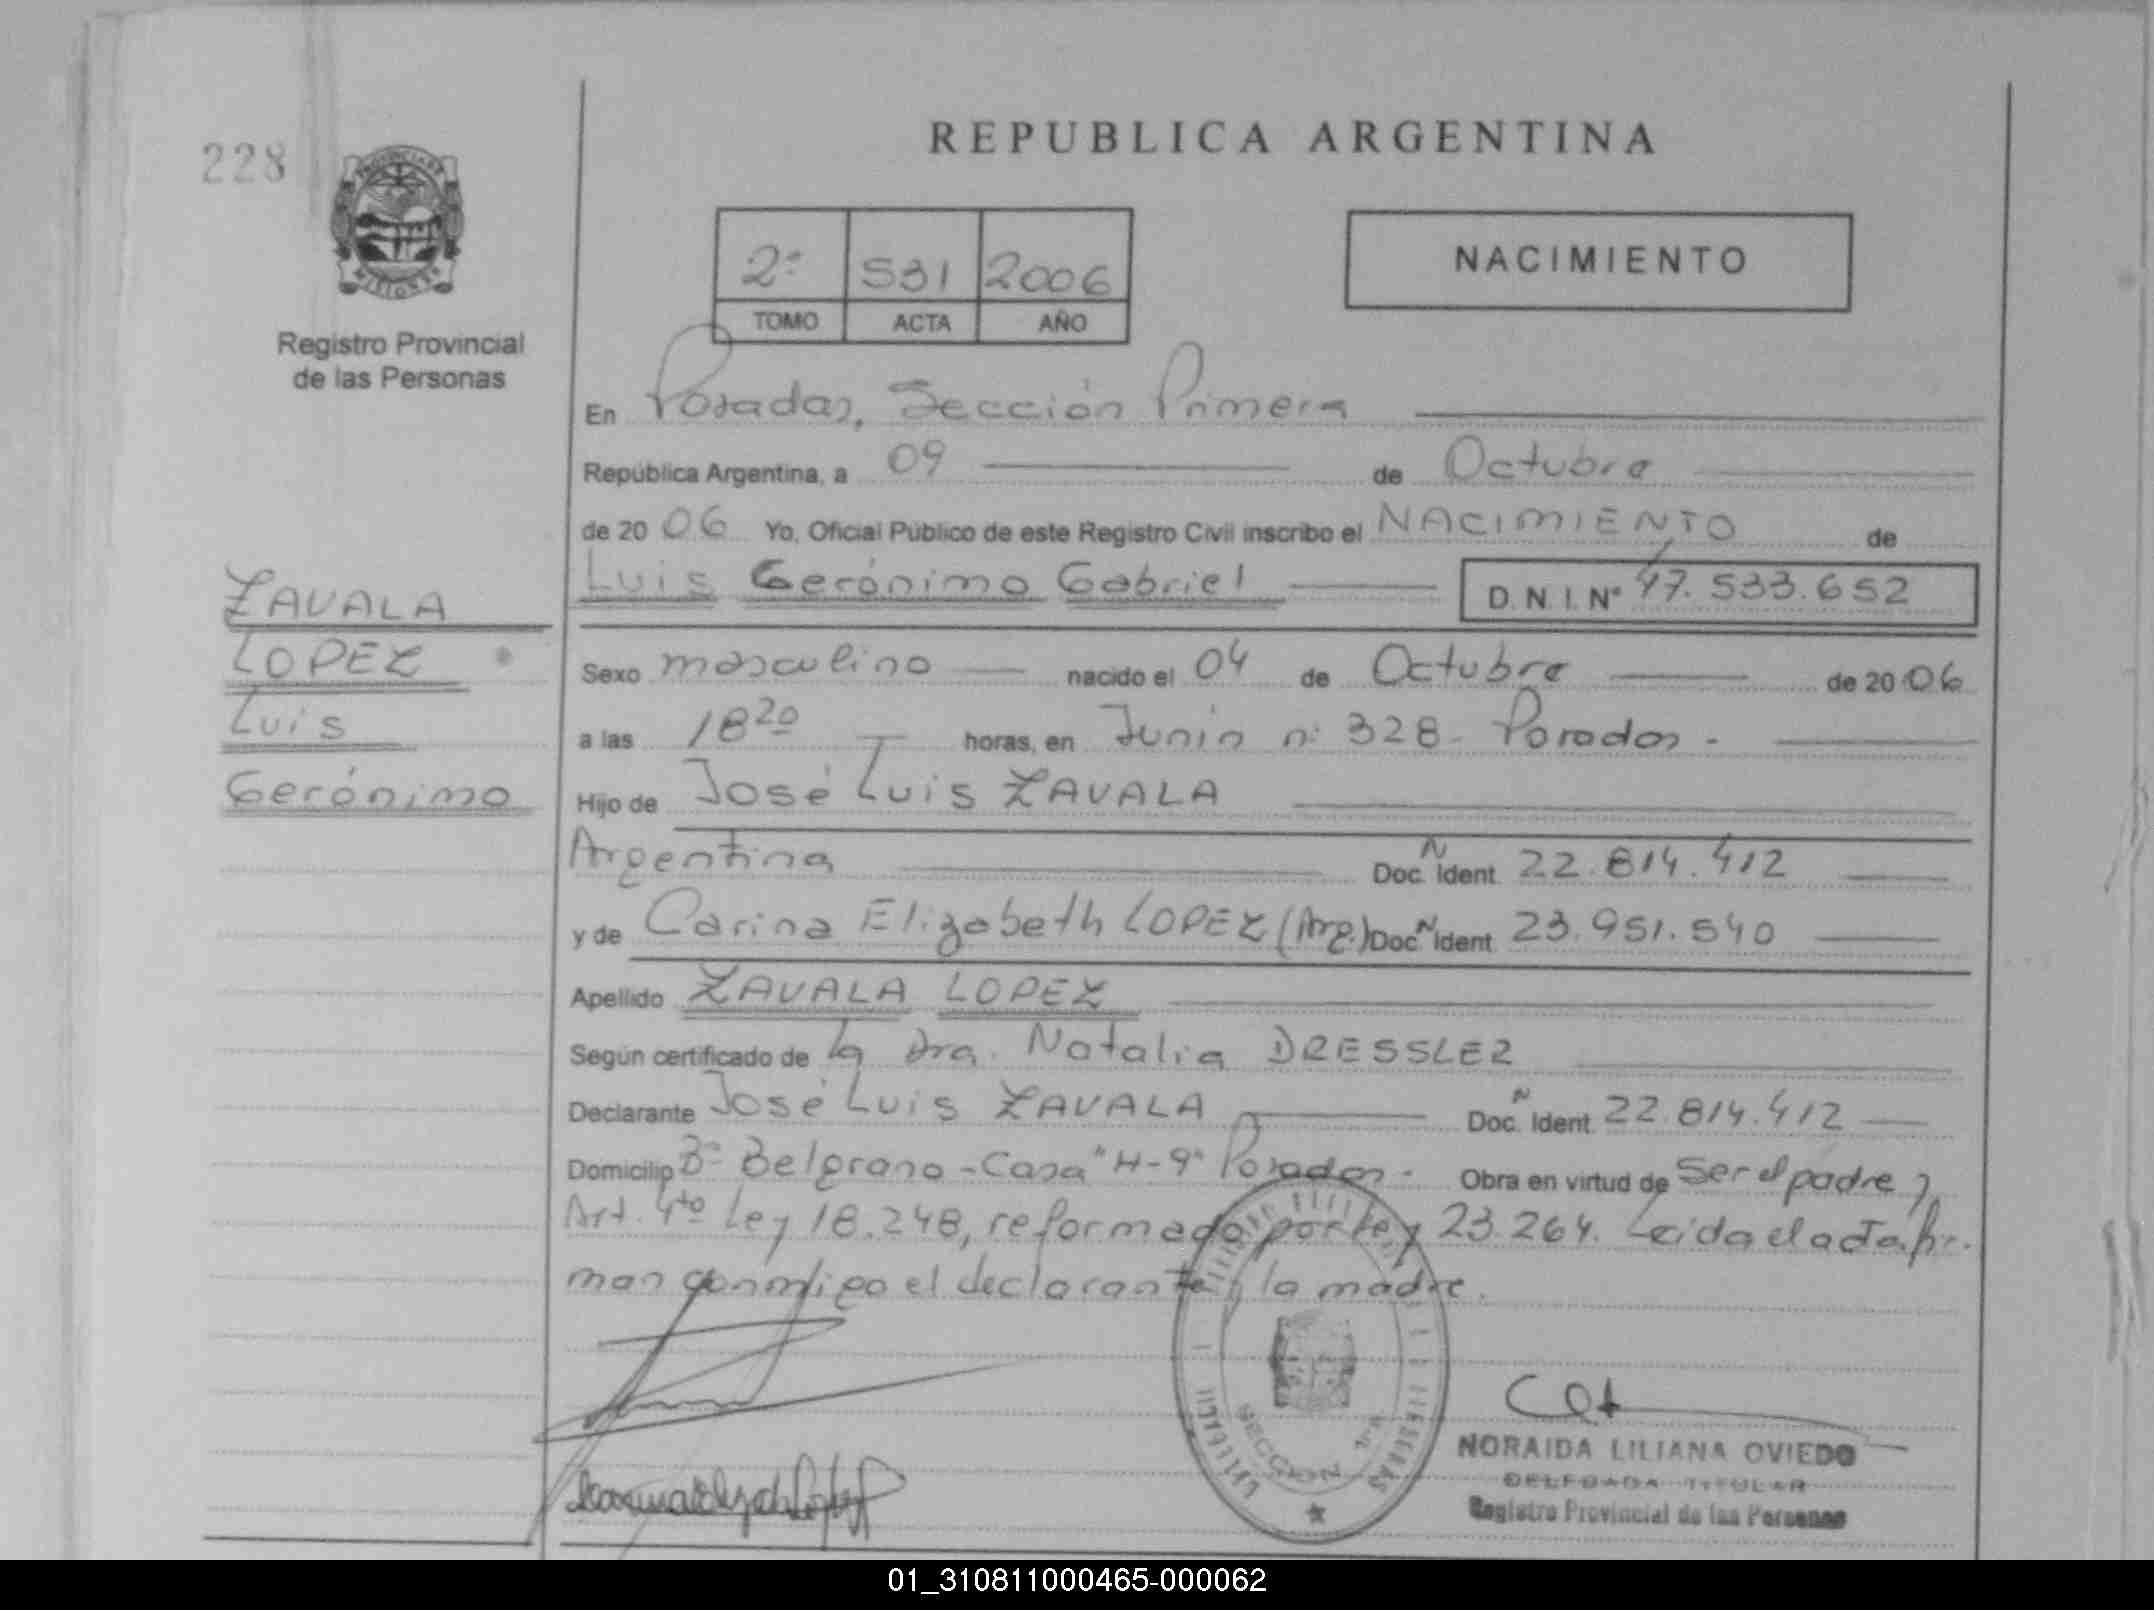 228
REPUBLICA ARGENTINA
2º 531 2006
TOMO ACTA AÑO
NACIMIENTO
PROVINCIA DE
MISIONES
Registro Provincial
de las Personas
En Posadas, Sección Primera
República Argentina, a 09 de Octubre
de 2006 Yo, Oficial Público de este Registro Civil inscribo el NACIMIENTO de
Luis Gerónimo Gabriel D.N.I. Nº 47.533.652
ZAVALA
LOPEZ
Luis
Gerónimo
Sexo masculino nacido el 04 de Octubre de 2006
a las 18 20 horas, en Junín nº 328 - Posadas -
Hijo de José Luis ZAVALA
Argentina Doc. N Ident. 22.814.412
y de Carina Elizabeth LOPEZ (Arg.) Doc. N Ident. 23.951.540
Apellido ZAVALA LOPEZ
Según certificado de la Dra. Natalia DRESSLER
Declarante José Luis ZAVALA Doc. N Ident. 22.814.412
Domicilio Bº Belgrano - Casa "H-9" Posadas - Obra en virtud de ser el padre y
Art. 4to Ley 18.248, reformado por Ley 23.264. Leída el acta, fir-
man conmigo el declarante y la madre.
SECCION 1ra
NORAIDA LILIANA OVIEDO
DELEGADA TITULAR
Registro Provincial de las Personas
01_310811000465-000062